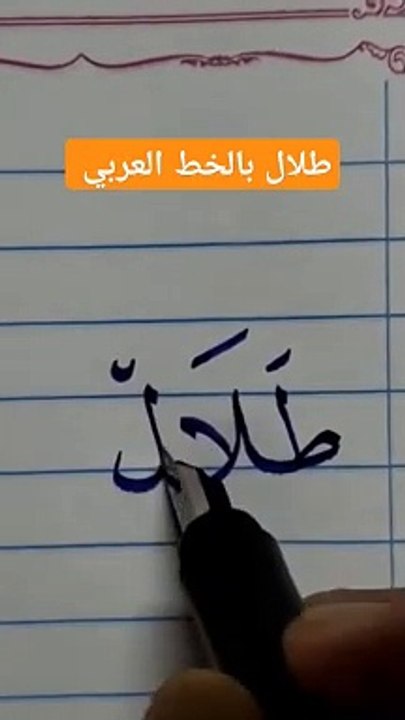 طلال بالخط العربي
طَلَال